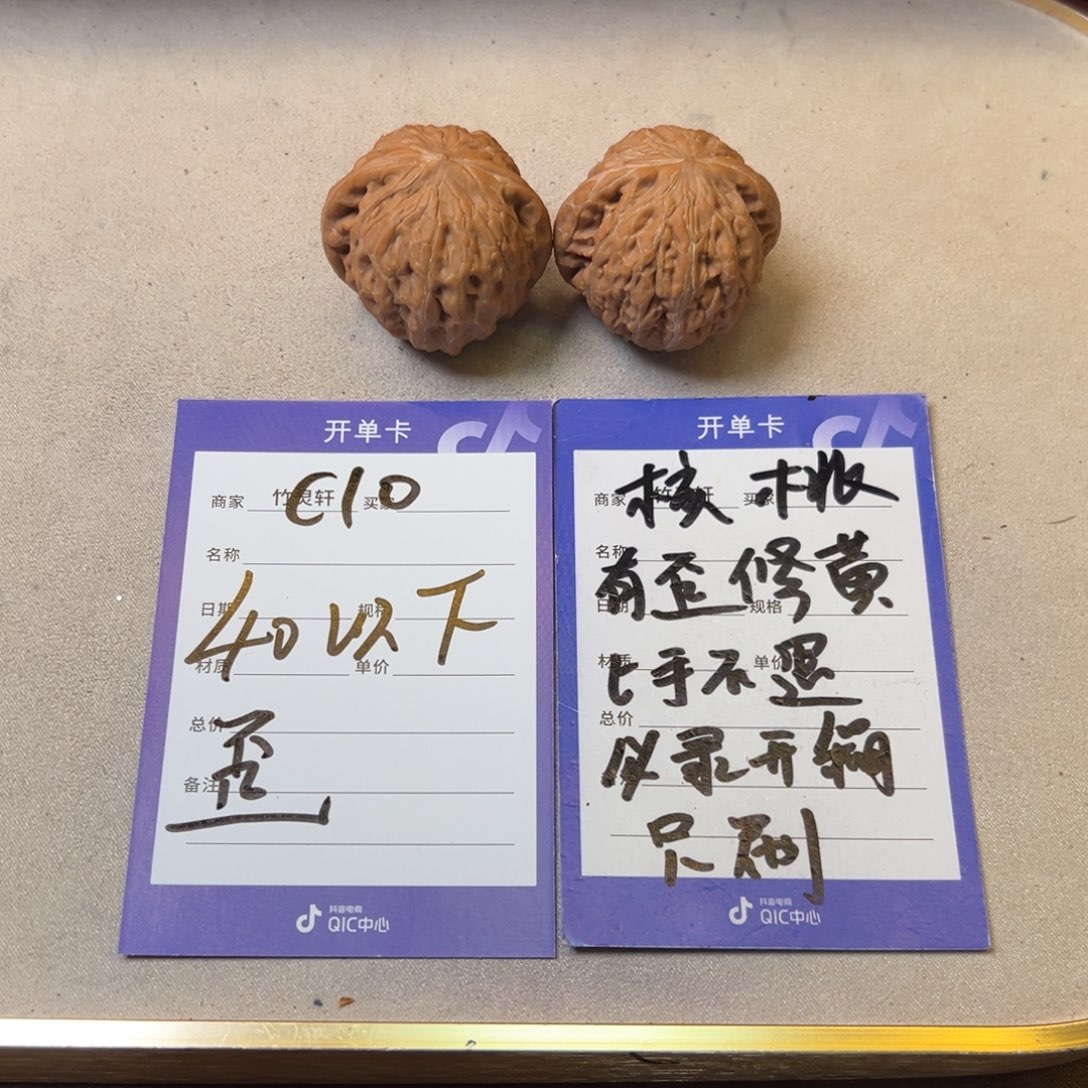 开单卡
商家 竹灵轩 买家
C10
名称
日期 规格
40以下
材质 单价
总价
备注
歪
抖音电商
QIC中心
开单卡
商家 买家
核桃
名称
有歪修黄
日期 规格
上手不退
材质 单价
总价
必录开箱
只刷
抖音电商
QIC中心